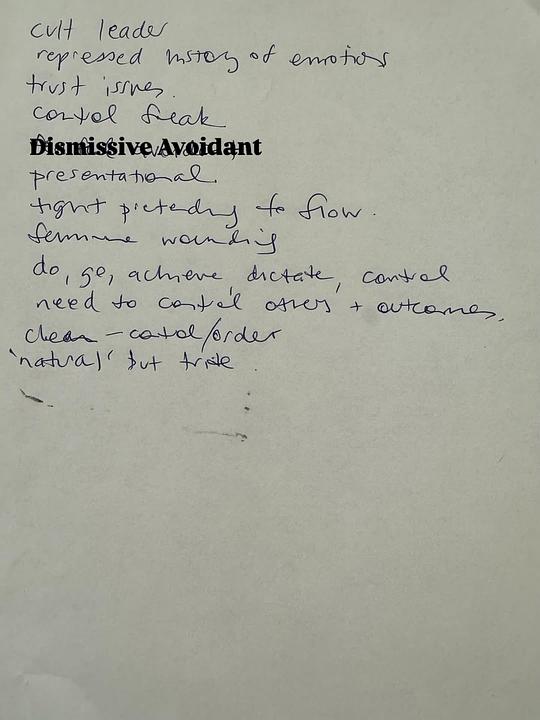 cult leader
repressed history of emotions
trust issues.
control freak
Dismissive Avoidant
presentational.
tight pretending to flow.
feminine wounding
do, go, achieve, dictate, control
need to control others + outcomes.
clean - control/order
'natural' but trite.